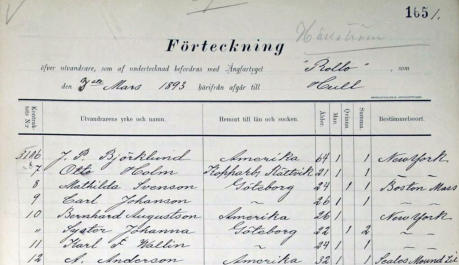 165/1.
Hällström
Förteckning
öfver utvandrare, som af undertecknad befordras med Ångfartyget "Rollo", som
den 3dje Mars 1893 härifrån afgår till Hull
Kontrakts No. Utvandrarens yrke och namn. Hemort till län och socken. Ålder. Man. Qvinna. Summa. Bestämmelseort.
5186 J. P. Björklund Amerika 64 1 1 New York
7 Otto Holm Kopparb. Rättvik 21 1 1 "
8 Mathilda Svenson Göteborg 24 1 1 Boston Mass
9 Carl Johanson " 26 1 1 "
10 Bernhard Augustson Amerika 26 1 New York
" Syster Johanna Göteborg 22 1 2 "
11 Karl F. Wallin " 24 1 1 "
12 A. Anderson Amerika 32 1 1 Scales Mound